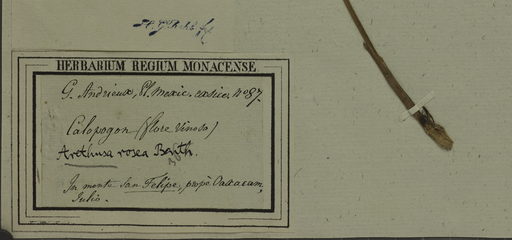 HERBARIUM REGIUM MONACENSE.
G. Andrieux, Pl. Mexic. exsicc. No 87.
Calopogon (flore vinoso)
Arethusa rosea Benth.
In monte San Felipe, prope Oaxacam,
Julio.